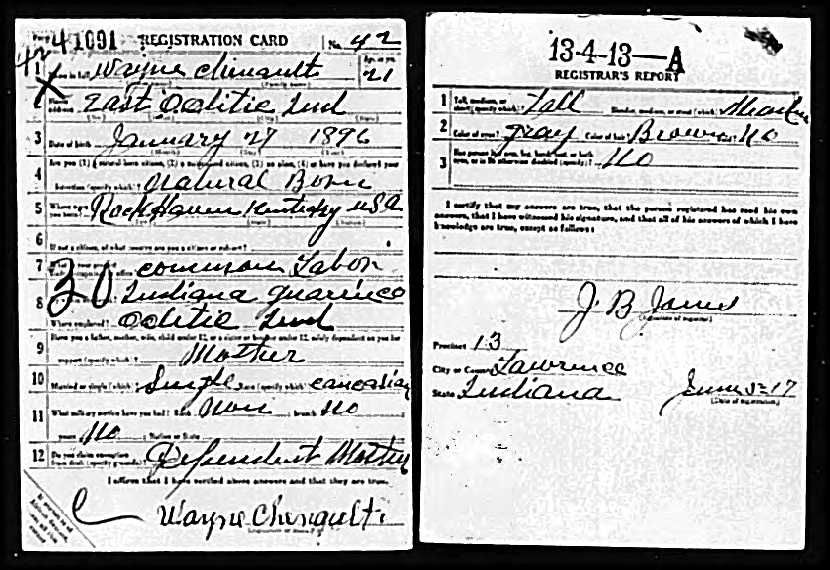 41091 REGISTRATION CARD No. 42
42
1 Wayne Chenault 21
East Oolitic Ind
3 Date of birth January 27 1896
4 Natural Born
5 Rock Haven Kentucky USA
6 If not a citizen, of what country are you a citizen or subject?
7 common Labor
30
8 Indiana Quarries
Where employed? Oolitic Ind
9 Have you a father, mother, wife, child under 12, or a sister or brother under 12, solely dependent on you for
support (specify which)? Mother
10 Married or single (which)? Single Race (specify which)? Caucasian
11 What military service have you had? Rank Non branch No
years No Nation or State
12 Do you claim exemption from draft (specify grounds)? Dependent Mother
I affirm that I have verified above answers and that they are true.
Wayne Chenault
13-4-13—A
REGISTRAR'S REPORT
1 Tall, medium, or short (specify which)? Tall Slender, medium, or stout (which)?
2 Color of eyes? Gray Color of hair? Brown Bald? No
3 Has person lost arm, leg, hand, foot, or both eyes, or is he otherwise disabled (specify)? No
I certify that my answers are true, that the person registered has read his own
answers, that I have witnessed his signature, and that all of his answers of which I have
knowledge are true, except as follows:
J. B. Jones
(Signature of registrar)
Precinct 13
City or County Lawrence
State Indiana June 5-17
(Date of registration)